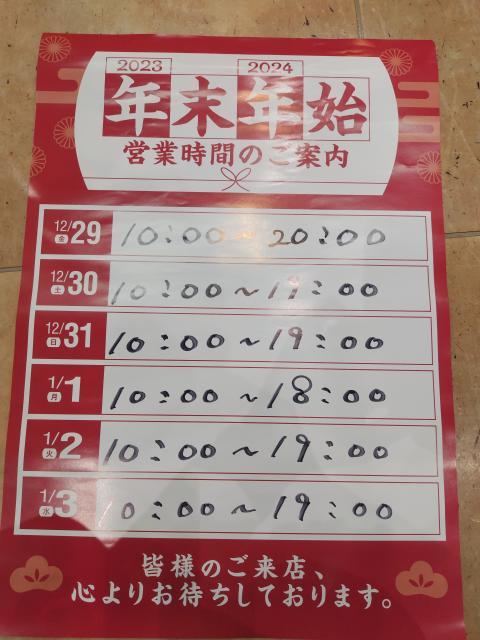 2023 2024
年末年始
営業時間のご案内
12/29 金 10:00~20:00
12/30 土 10:00~19:00
12/31 日 10:00~19:00
1/1 月 10:00~18:00
1/2 火 10:00~19:00
1/3 水 10:00~19:00
皆様のご来店、
心よりお待ちしております。